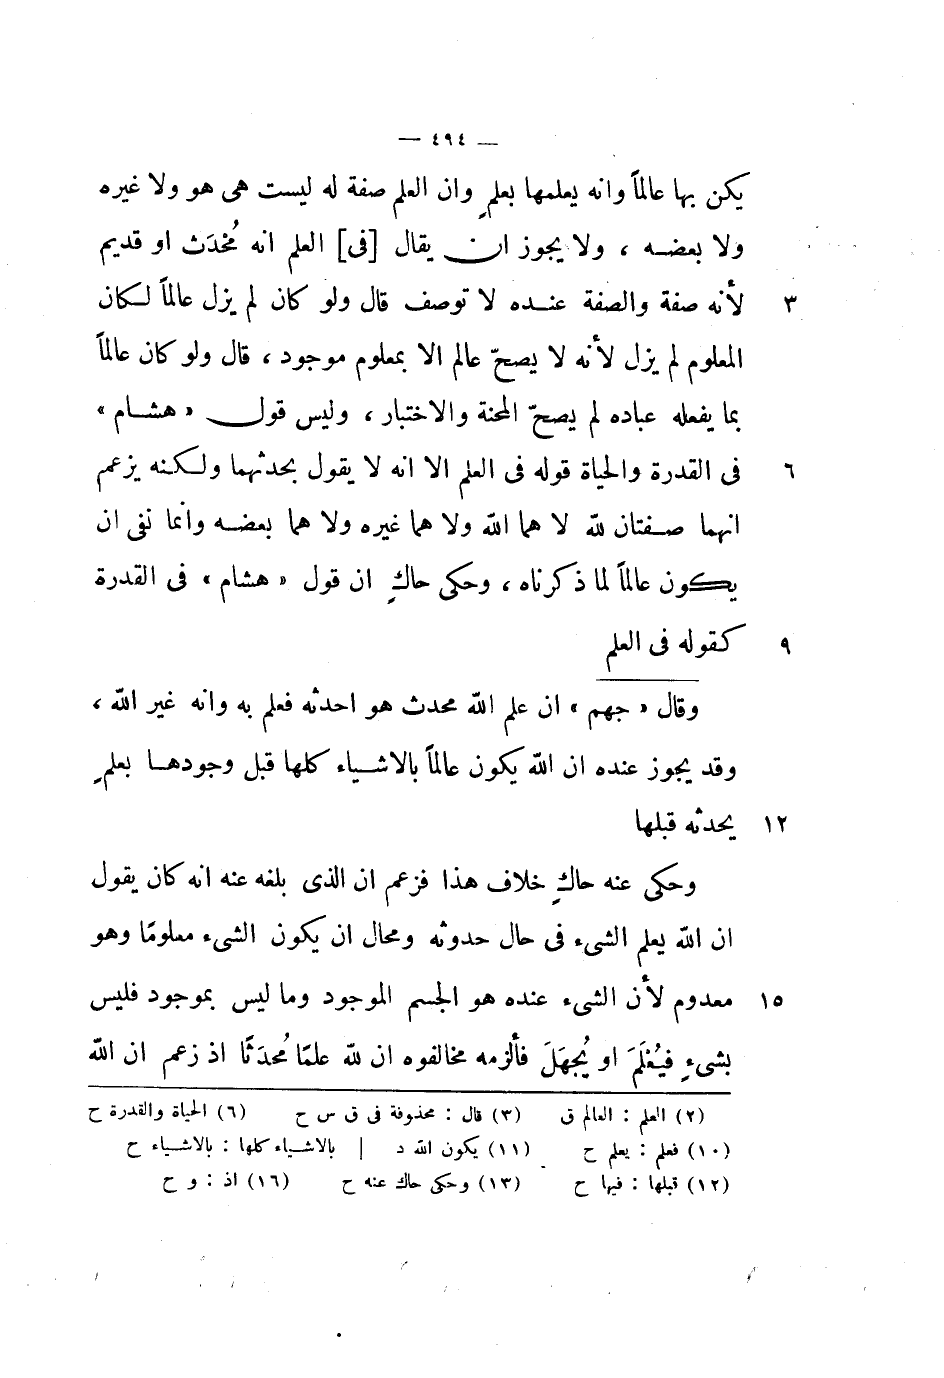 — ٤٩٤ —
يكن بها عالماً وانه يعلمها بعلمٍ وان العلم صفة له ليست هى هو ولا غيره
ولا بعضه ، ولا يجوز ان يقال [فى] العلم انه مُحْدَث او قديم
٣ لأنه صفة والصفة عنده لا توصف قال ولو كان لم يزل عالماً لكان
المعلوم لم يزل لأنه لا يصحّ عالم الا بمعلوم موجود ، قال ولو كان عالماً
بما يفعله عباده لم يصحّ المحنة والاختبار ، وليس قول « هشام »
٦ فى القدرة والحياة قوله فى العلم الا انه لا يقول بحدثهما ولكنه يزعم
انهما صفتان لله لا هما الله ولا هما غيره ولا هما بعضه وانما نفى ان
يكون عالماً لما ذكرناه ، وحكى حاكٍ ان قول « هشام » فى القدرة
٩ كقوله فى العلم
وقال « جهم » ان علم الله محدث هو احدثه فعلم به وانه غير الله ،
وقد يجوز عنده ان الله يكون عالماً بالاشياء كلها قبل وجودها بعلمٍ
١٢ يحدثه قبلها
وحكى عنه حاكٍ خلاف هذا فزعم ان الذى بلغه عنه انه كان يقول
ان الله يعلم الشىء فى حال حدوثه ومحال ان يكون الشىء معلومًا وهو
١٥ معدوم لأن الشىء عنده هو الجسم الموجود وما ليس بموجود فليس
بشىءٍ فيُعْلَمَ او يُجهَلَ فألزمه مخالفوه ان لله علمًا مُحدَثًا اذ زعم ان الله
(٢) العلم : العالم ق (٣) قال : محذوفة فى ق س ح (٦) الحياة والقدرة ح
(١٠) فعلم : يعلم ح (١١) يكون الله د | بالاشياء كلها : بالاشياء ح
(١٢) قبلها : فيها ح (١٣) وحكى حاك عنه ح (١٦) اذ : و ح